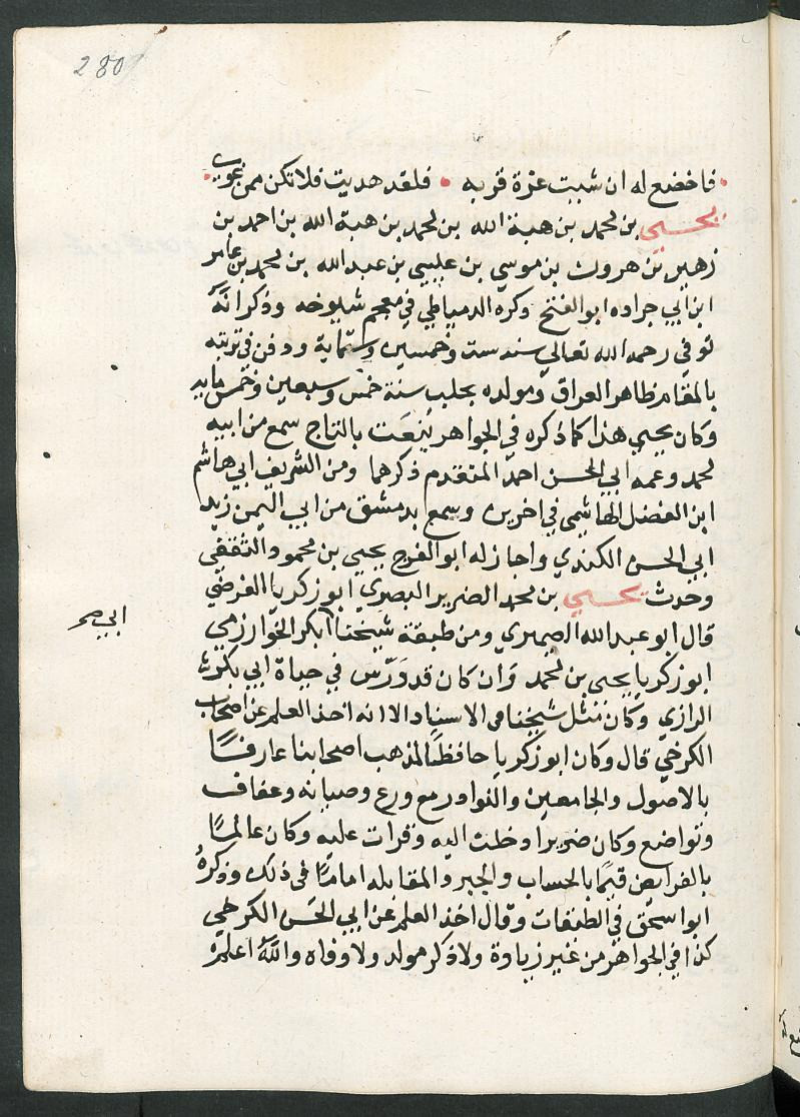 280
فاخضع له ان شيت عزة قربه • فلقد هديت فلاتكن ممن غوي
يحيي بن محمد بن هبة الله بن محمد بن هبة الله بن احمد بن
زهير بن هرون بن موسي بن عيسي بن عبدالله بن محمد بن عامر
ابن ابي جراده ابو الفتح ذكره الدمياطي في معجم شيوخه وذكر انه
توفي رحمه الله تعالي سنة ست وخمسين وستماية ودفن في تربته
بالمقام ظاهر العراق ومولده بحلب سنة خمس وسبعين وخمس ماية
وكان يحيي هذا كما ذكره في الجواهر ينعت بالتاج سمع من ابيه
محمد وعمه ابي الحسن احمد المتقدم ذكرهما ومن الشريف ابي هاشم
ابن الفضل الهاشمي في اخرين وسمع بدمشق من ابي اليمن زيد
ابي الحسن الكندي واجاز له ابو الفرج يحيي بن محمود الثقفي
وحدث يحيي بن محمد الضرير البصري ابو زكريا الفرضي
قال ابو عبد الله الصيمري ومن طبقة شيخنا ابكر الخوارزمي
ابي بكر
ابو زكريا يحيي بن محمد وان كان قد درس في حياة ابي بكر
الرازي وكان مثل شيخنا في الاسناد الا انه اخذ العلم عن اصحاب
الكرخي قال وكان ابو زكريا حافظا لمذهب اصحابنا عارفا
بالاصول والجامعين والنوادر مع ورع وصيانه وعفاف
وتواضع وكان ضريرا دخلت اليه وقرات عليه وكان عالما
بالفرايض قيما بالحساب والجبر والمقابله اماما في ذلك وذكره
ابو اسحق في الطبقات وقال اخذ العلم عن ابي الحسن الكرخي
كذا في الجواهر من غير زيادة ولا ذكر مولد ولا وفاه والله اعلم